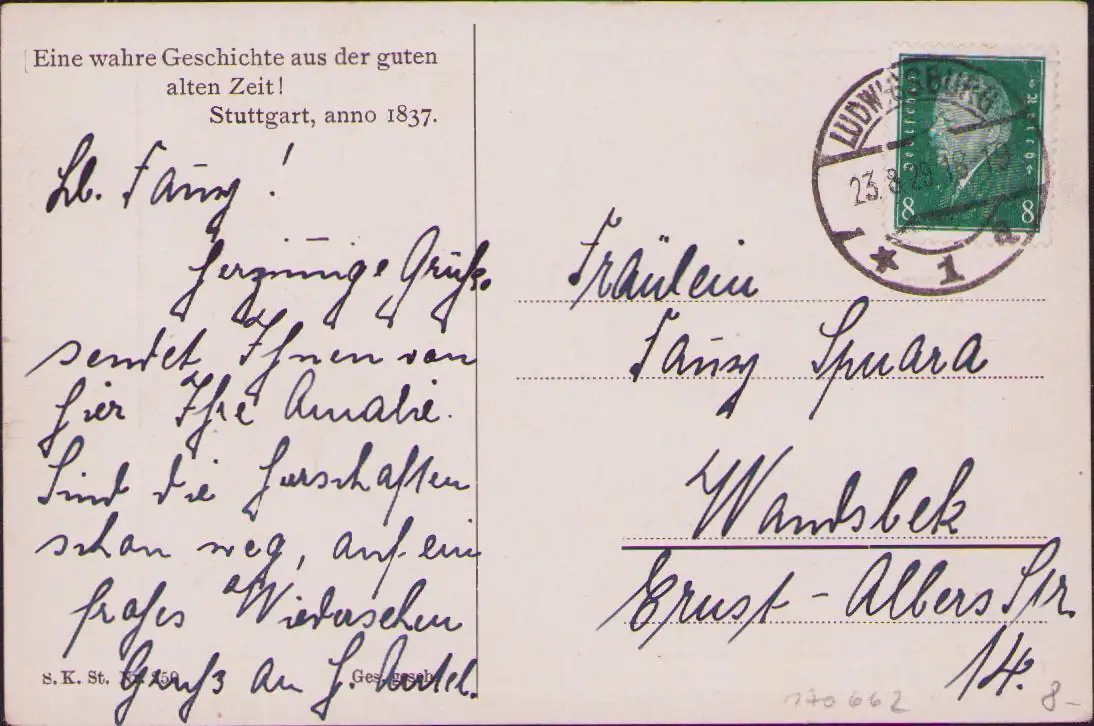 Eine wahre Geschichte aus der guten
alten Zeit!
Stuttgart, anno 1837.
Lb. Fanny!
herzinnige Grüße
sendet Ihnen von
hier Ihre Amalie.
Sind die Herschaften
schon weg, auf ein
frohes Wiedersehen
Gruß an H.
S. K. St. Nr. 259
Ges. gesch.
LUDWIGSBURG
23.8.29.18-19
* 1 a
Deutsches Reich
8 8
Fräulein
Fanny Spuara
Wandsbek
Ernst-Albers Str.
14.
170662
8-